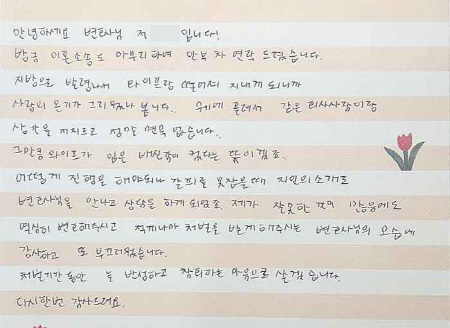 안녕하세요 변호사님 저 입니다!
방금 이혼소송도 마무리하여 안부차 연락 드렸습니다.
지방으로 발령나서 와이프랑 떨어져 지내게 되니까
사람의 온기가 그리웠나 봅니다. 꾀에 홀려서 같은 회사사람이랑
실수를 저지르고 정말 면목 없습니다.
그만큼 와이프가 입은 배신감이 컸다는 뜻이겠죠.
어떻게 진행을 해야되나 갈피를 못잡을때 지인의 소개로
변호사님을 만나고 상담을 하게 되었죠. 제가 잘못한 것이 많음에도
열심히 변호해주시고 적게나마 처벌을 받게해주시는 변호사님의 모습에
감사하고 또 부끄러웠습니다.
처벌기간동안 늘 반성하고 참회하는 마음으로 살겠습니다.
다시한번 감사드려요.